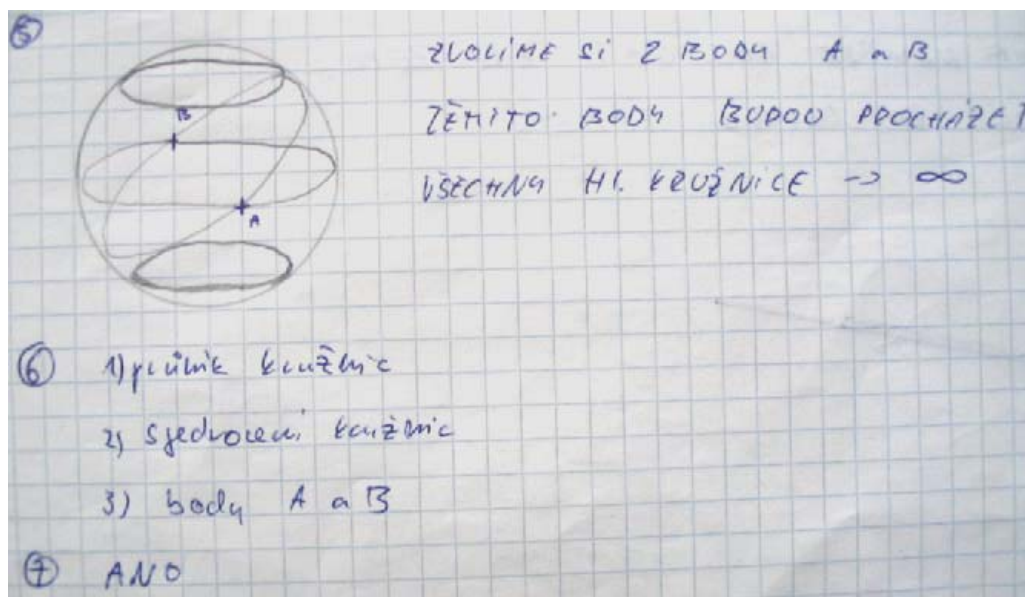 5
ZVOLÍME SI 2 BODY A a B
TĚMITO BODY BUDOU PROCHÁZET
VŠECHNY HL. KRUŽNICE -> ∞
B
A
6 1) průnik kružnic
2) sjednocení kružnic
3) body A a B
7 ANO